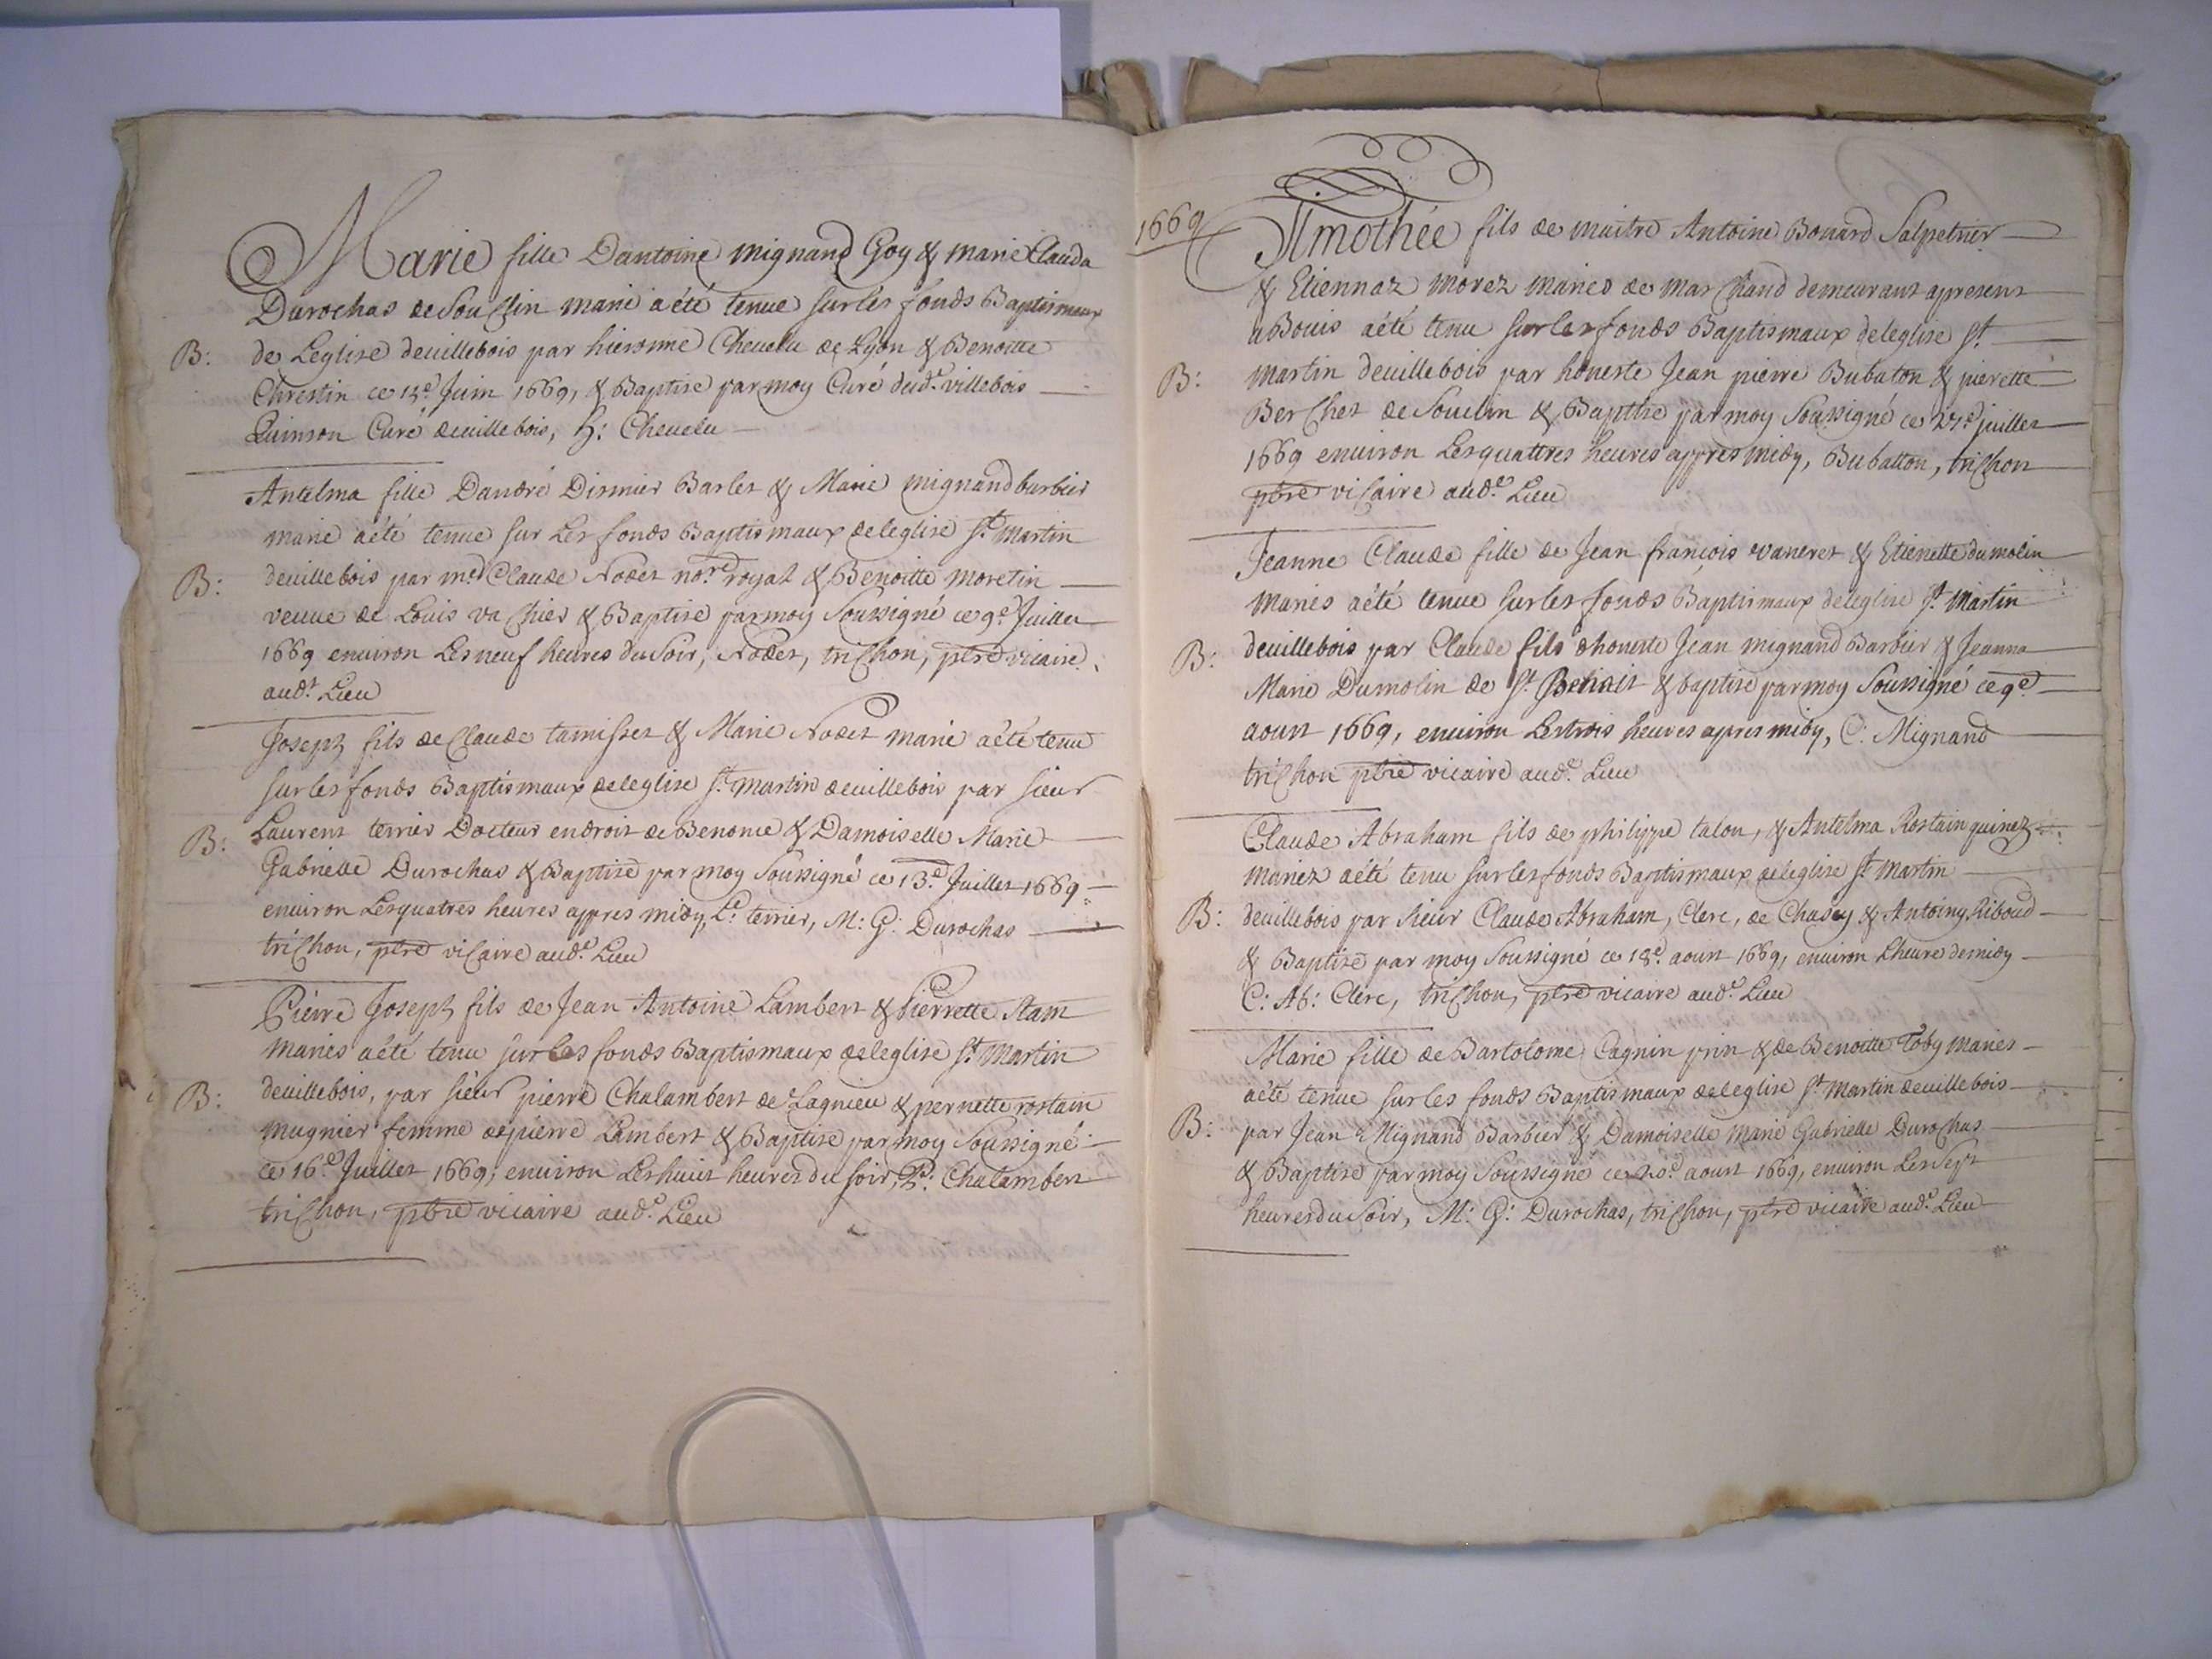 Marie fille Dantoine mignand Goy & marie Clauda
Durochas de Souclin marié a été tenue sur les fonds Baptismaux
B: de Leglise deuillebois par hierome Cheuelu de Lyon & Benoitte
Chrestin ce Juin 1669, & Baptisé par moy Curé dud.^t villebois
Quinson Curé deuillebois, H: Cheuelu
Antelma fille Dandré Dirmier Barlet & Marie mignand barbier
marié aété tenue sur Les fonds Baptismaux deleglise S.^t Martin
B: deuillebois par m.^e Claude Nodet no.^re royal & Benoitte moretin
veuue de Louis vachier & Baptisé par moy Soussigné ce 9.^e Juillet
1669 enuiron Les neuf heures du Soir, Nodet, trichon, ptre vicaire
aud.^t Lieu
Joseph fils de Claude tamisset & Marie Nodet marié aété tenu
sur les fonds Baptismaux deleglise S.^t Martin deuillebois par sieur
B: Laurent terrier Docteur endroit de Benonce & Damoiselle Marie
Gabrielle Durochas & Baptisé par moy Soussigné ce 13.^e Juillet 1669
enuiron Les quatres heures appres midy, L.^t terrier, M: G: Durochas
trichon, ptre vicaire aud.^t Lieu
Pierre Joseph fils de Jean Antoine Lambert & Pierrette Stam
mariés aété tenu sur les fonds Baptismaux deleglise S.^t Martin
B: deuillebois, par sieur pierre Chalambert de Lagnieu & pernette rostain
mugnier femme depierre Lambert & Baptisé par moy Soussigné
ce 16.^e Juillet 1669, enuiron Les huit heures du soir, P.^e: Chalambert
trichon, ptre vicaire aud.^t Lieu
1669 Timothée fils de maitre Antoine Bouard Salpetrier
& Etiennaz morez mariés de marchand demeurant apresent
a Bouis aété tenu sur les fonds Baptismaux deleglise S.^t
B: martin deuillebois par honeste Jean pierre Bubaton & pierette
Berchet de Souclin & Baptisé par moy Soussigné ce juillet
1669 enuiron Les quattres heures appres midy, Bubatton, trichon
ptre vicaire aud.^t Lieu
Jeanne Claude fille de Jean francois vaneret & Etienette dumolin
mariés aété tenue sur les fonds Baptismaux deleglise S.^t martin
B: deuillebois par Claude fils dhoneste Jean mignand Barbier & Jeanna
Marie Dumolin de S.^t Benoit & baptisé par moy Soussigné ce 9.^e
aoust 1669, enuiron Les trois heures apres midy, C: Mignand
trichon ptre vicaire aud.^t Lieu
Claude Abraham fils de philippe talon, & Antelma Rostain quinez
mariez aété tenu sur les fonds Baptismaux deleglise S.^t Martin
B: deuillebois par sieur Claude Abraham, Clerc, de Chasey & Antoiny Riboud
& Baptisé par moy Soussigné ce 18.^e aoust 1669, enuiron Lheure demidy
C: Ab: Clerc, trichon, ptre vicaire aud.^t Lieu
Marie fille de Bartolome Cagnin prin & de Benoitte Toby mariés
aété tenue sur les fonds Baptismaux deleglise S.^t martin deuillebois
B: par Jean Mignand Barbier & Damoiselle Marie Gabrielle Durochas
& Baptisé par moy Soussigné ce aoust 1669, enuiron Les Sept
heures du Soir, M: G: Durochas, trichon, ptre vicaire aud.^t Lieu